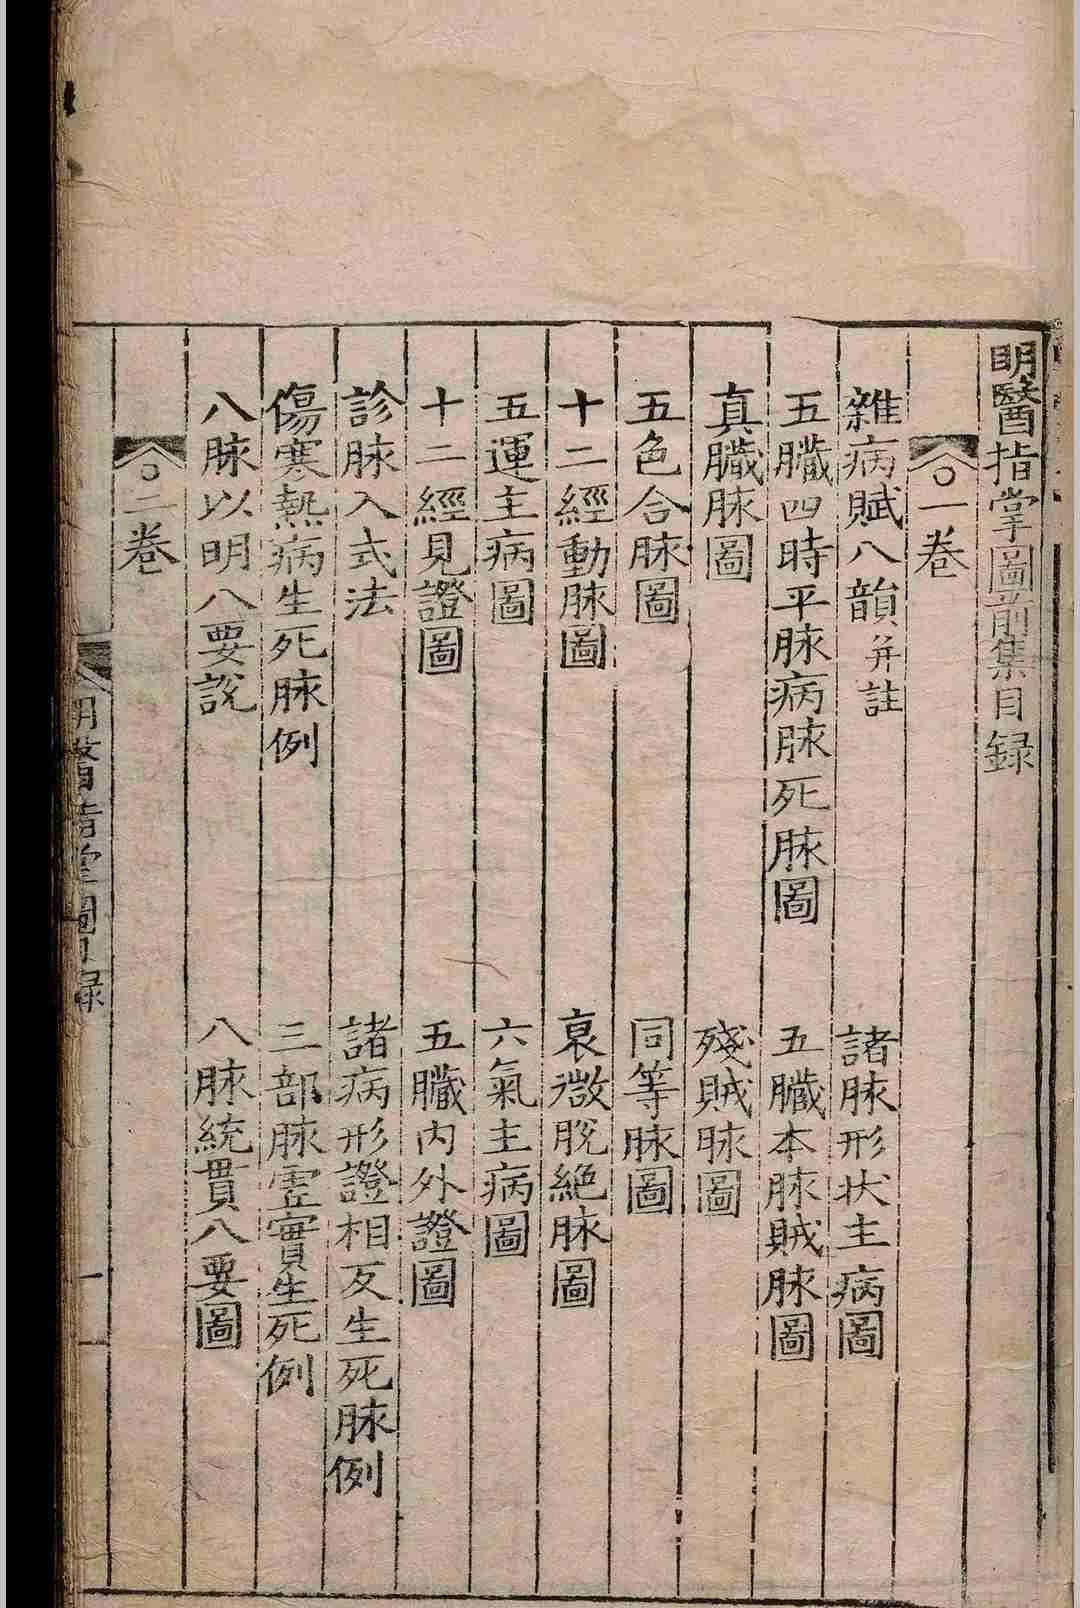 明醫指掌圖前集目録
○一卷
雜病賦八韻并註　諸脉形状主病圖
五臟四時平脉病脉死脉圖　五臟本脉賊脉圖
真臟脉圖　殘賊脉圖
五色合脉圖　同等脉圖
十二經動脉圖　衰微脫絕脉圖
五運主病圖　六氣主病圖
十二經見證圖　五臟内外證圖
診脉入式法　諸病形證相反生死脉例
傷寒熱病生死脉例　三部脉虛實生死例
八脉以明八要說　八脉統貫八要圖
○二卷
明醫指掌圖目録　一